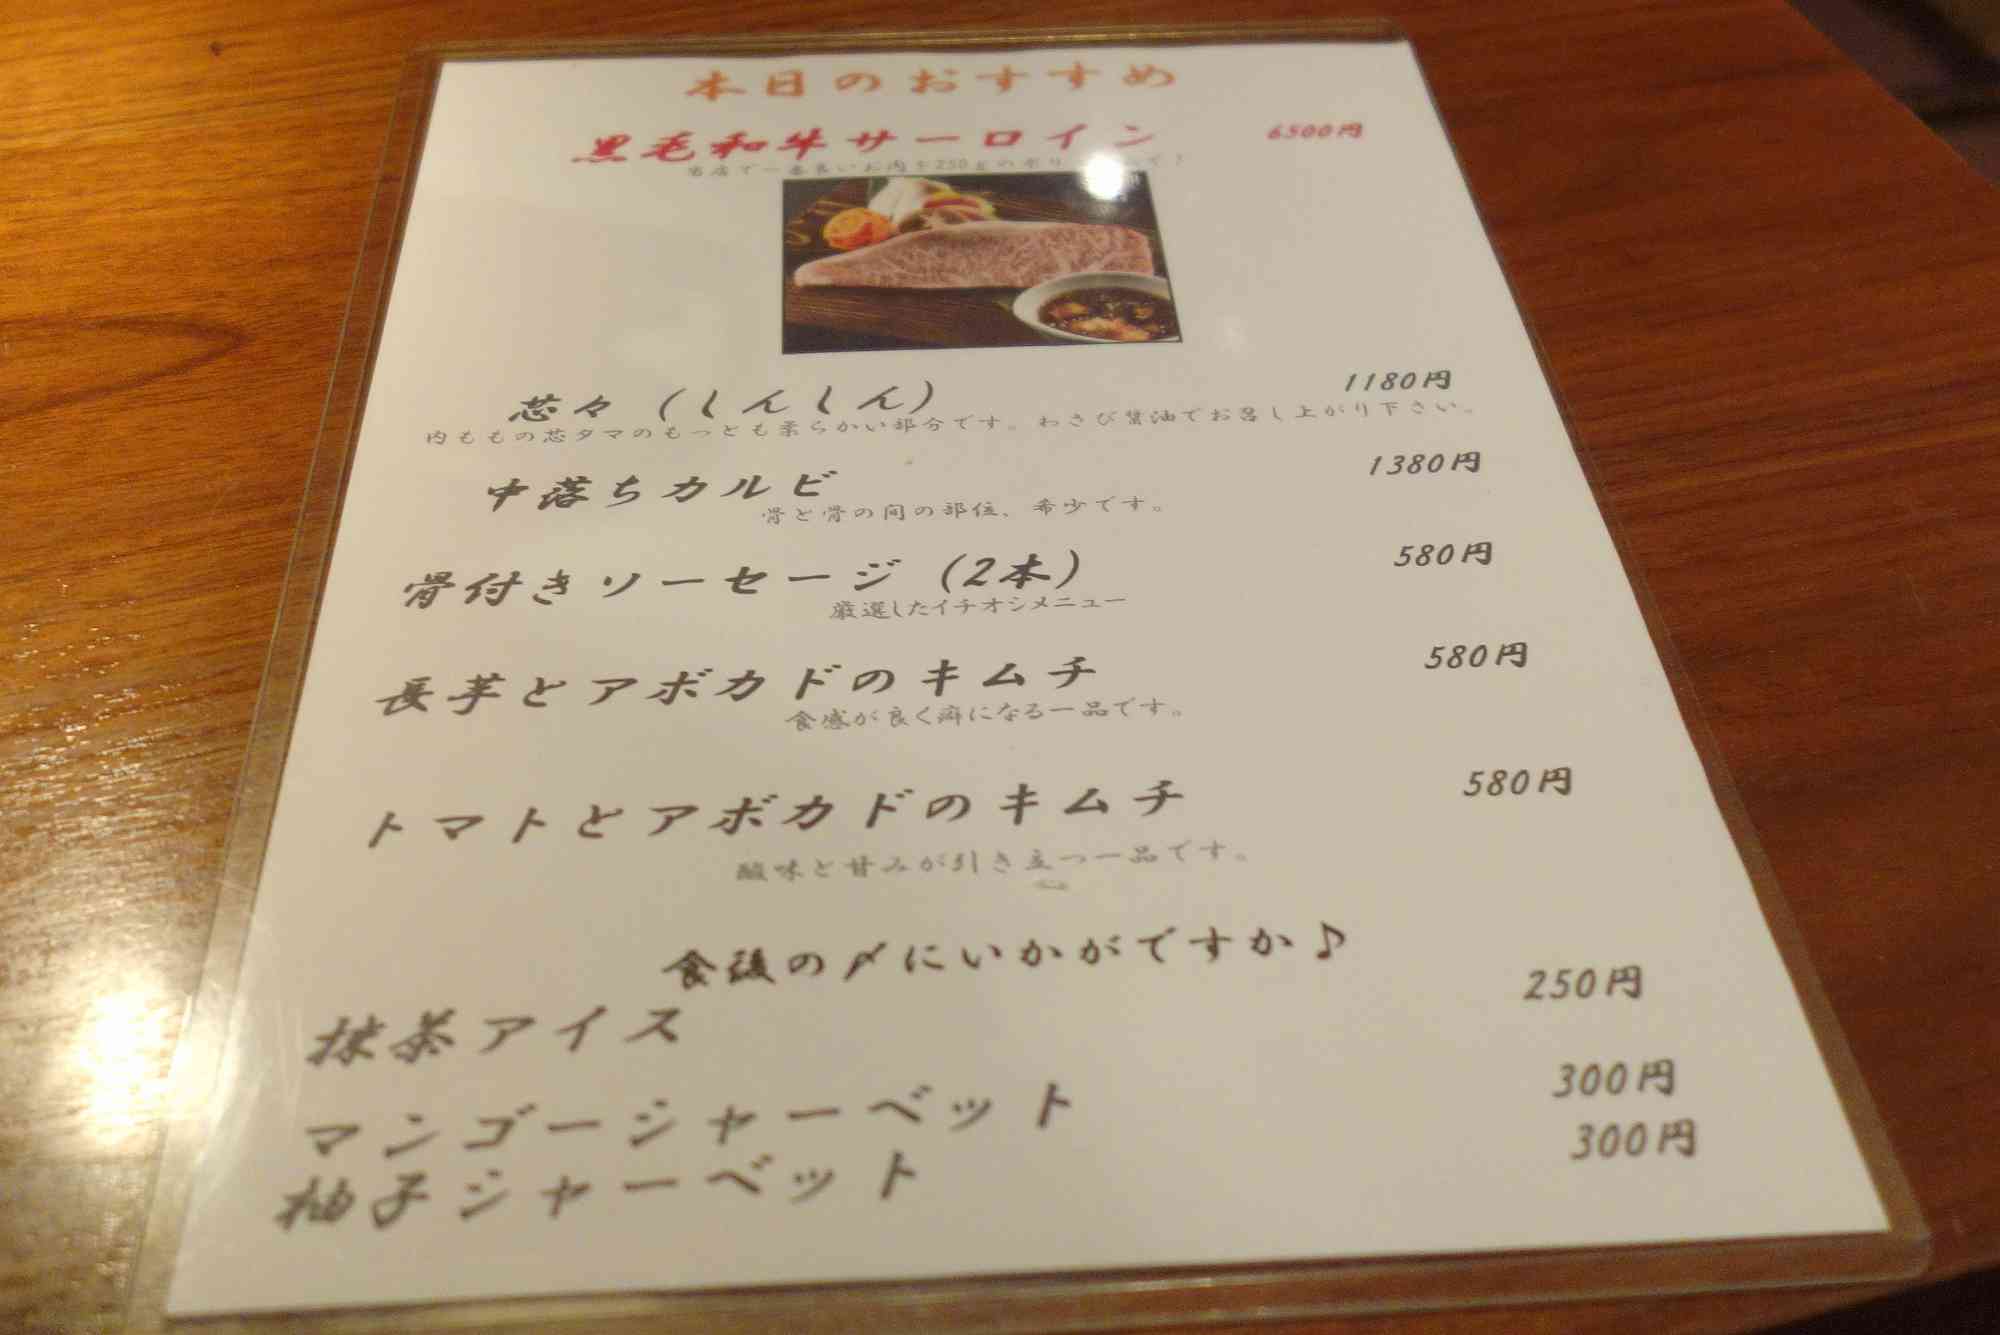 本日のおすすめ
黒毛和牛サーロイン 6500円
当店で一番良いお肉を250gの
芯々（しんしん） 1180円
内ももの芯タマのもっとも柔らかい部分です。わさび醤油でお召し上がり下さい。
中落ちカルビ 1380円
骨と骨の間の部位、希少です。
骨付きソーセージ（2本） 580円
厳選したイチオシメニュー
長芋とアボカドのキムチ 580円
食感が良く癖になる一品です。
トマトとアボカドのキムチ 580円
酸味と甘みが引き立つ一品です。
食後の〆にいかがですか♪
抹茶アイス 250円
マンゴーシャーベット 300円
柚子シャーベット 300円